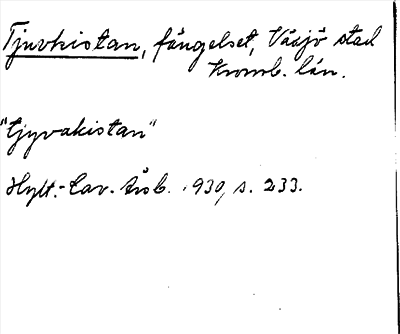 Tjuvkistan, fängelset, Växjö stad
Kronob. län.
"tjyvakistan"
Hylt.-Cav. årsb. 1930, s. 233.